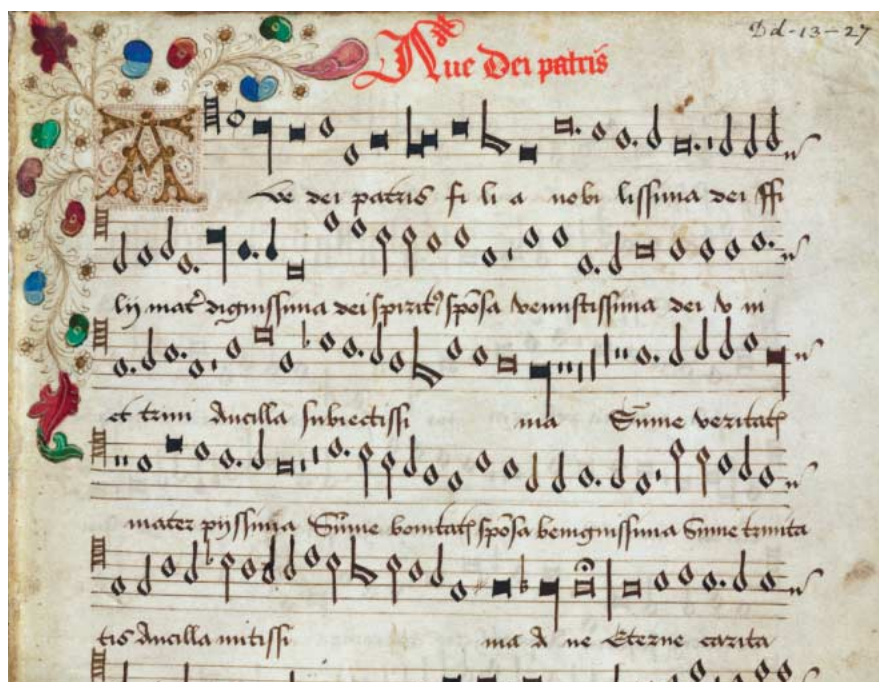 Dd-13-27
Aue Dei patris
Ave dei patris fi li a nobi lissima dei ffi
lij matr dignissima dei spirit9 sposa venustissima dei v ni
et trini Ancilla subiectissi ma Sume veritatis
mater pijssima Sume bonitatis sposa benignissima Sume trinita
tis Ancilla mitissi ma A ue Eterne carita